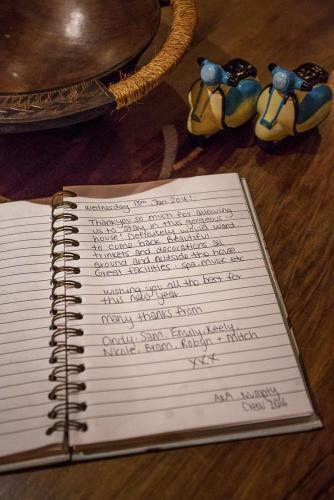 Wednesday 13th Jan 2016!
Thankyou so much for allowing
us to stay in this gorgeous
house! Definitely would want
to come back. Beautiful
trinkets and decorations all
around and outside the house.
Great facilities - spa, music etc
wishing you all the best for
this new year.
many thanks from
Cindy, Sam, Emily, Keely,
Nicole, Bram, Robyn + Mitch
xxx
AKA Numpty
Crew 2016